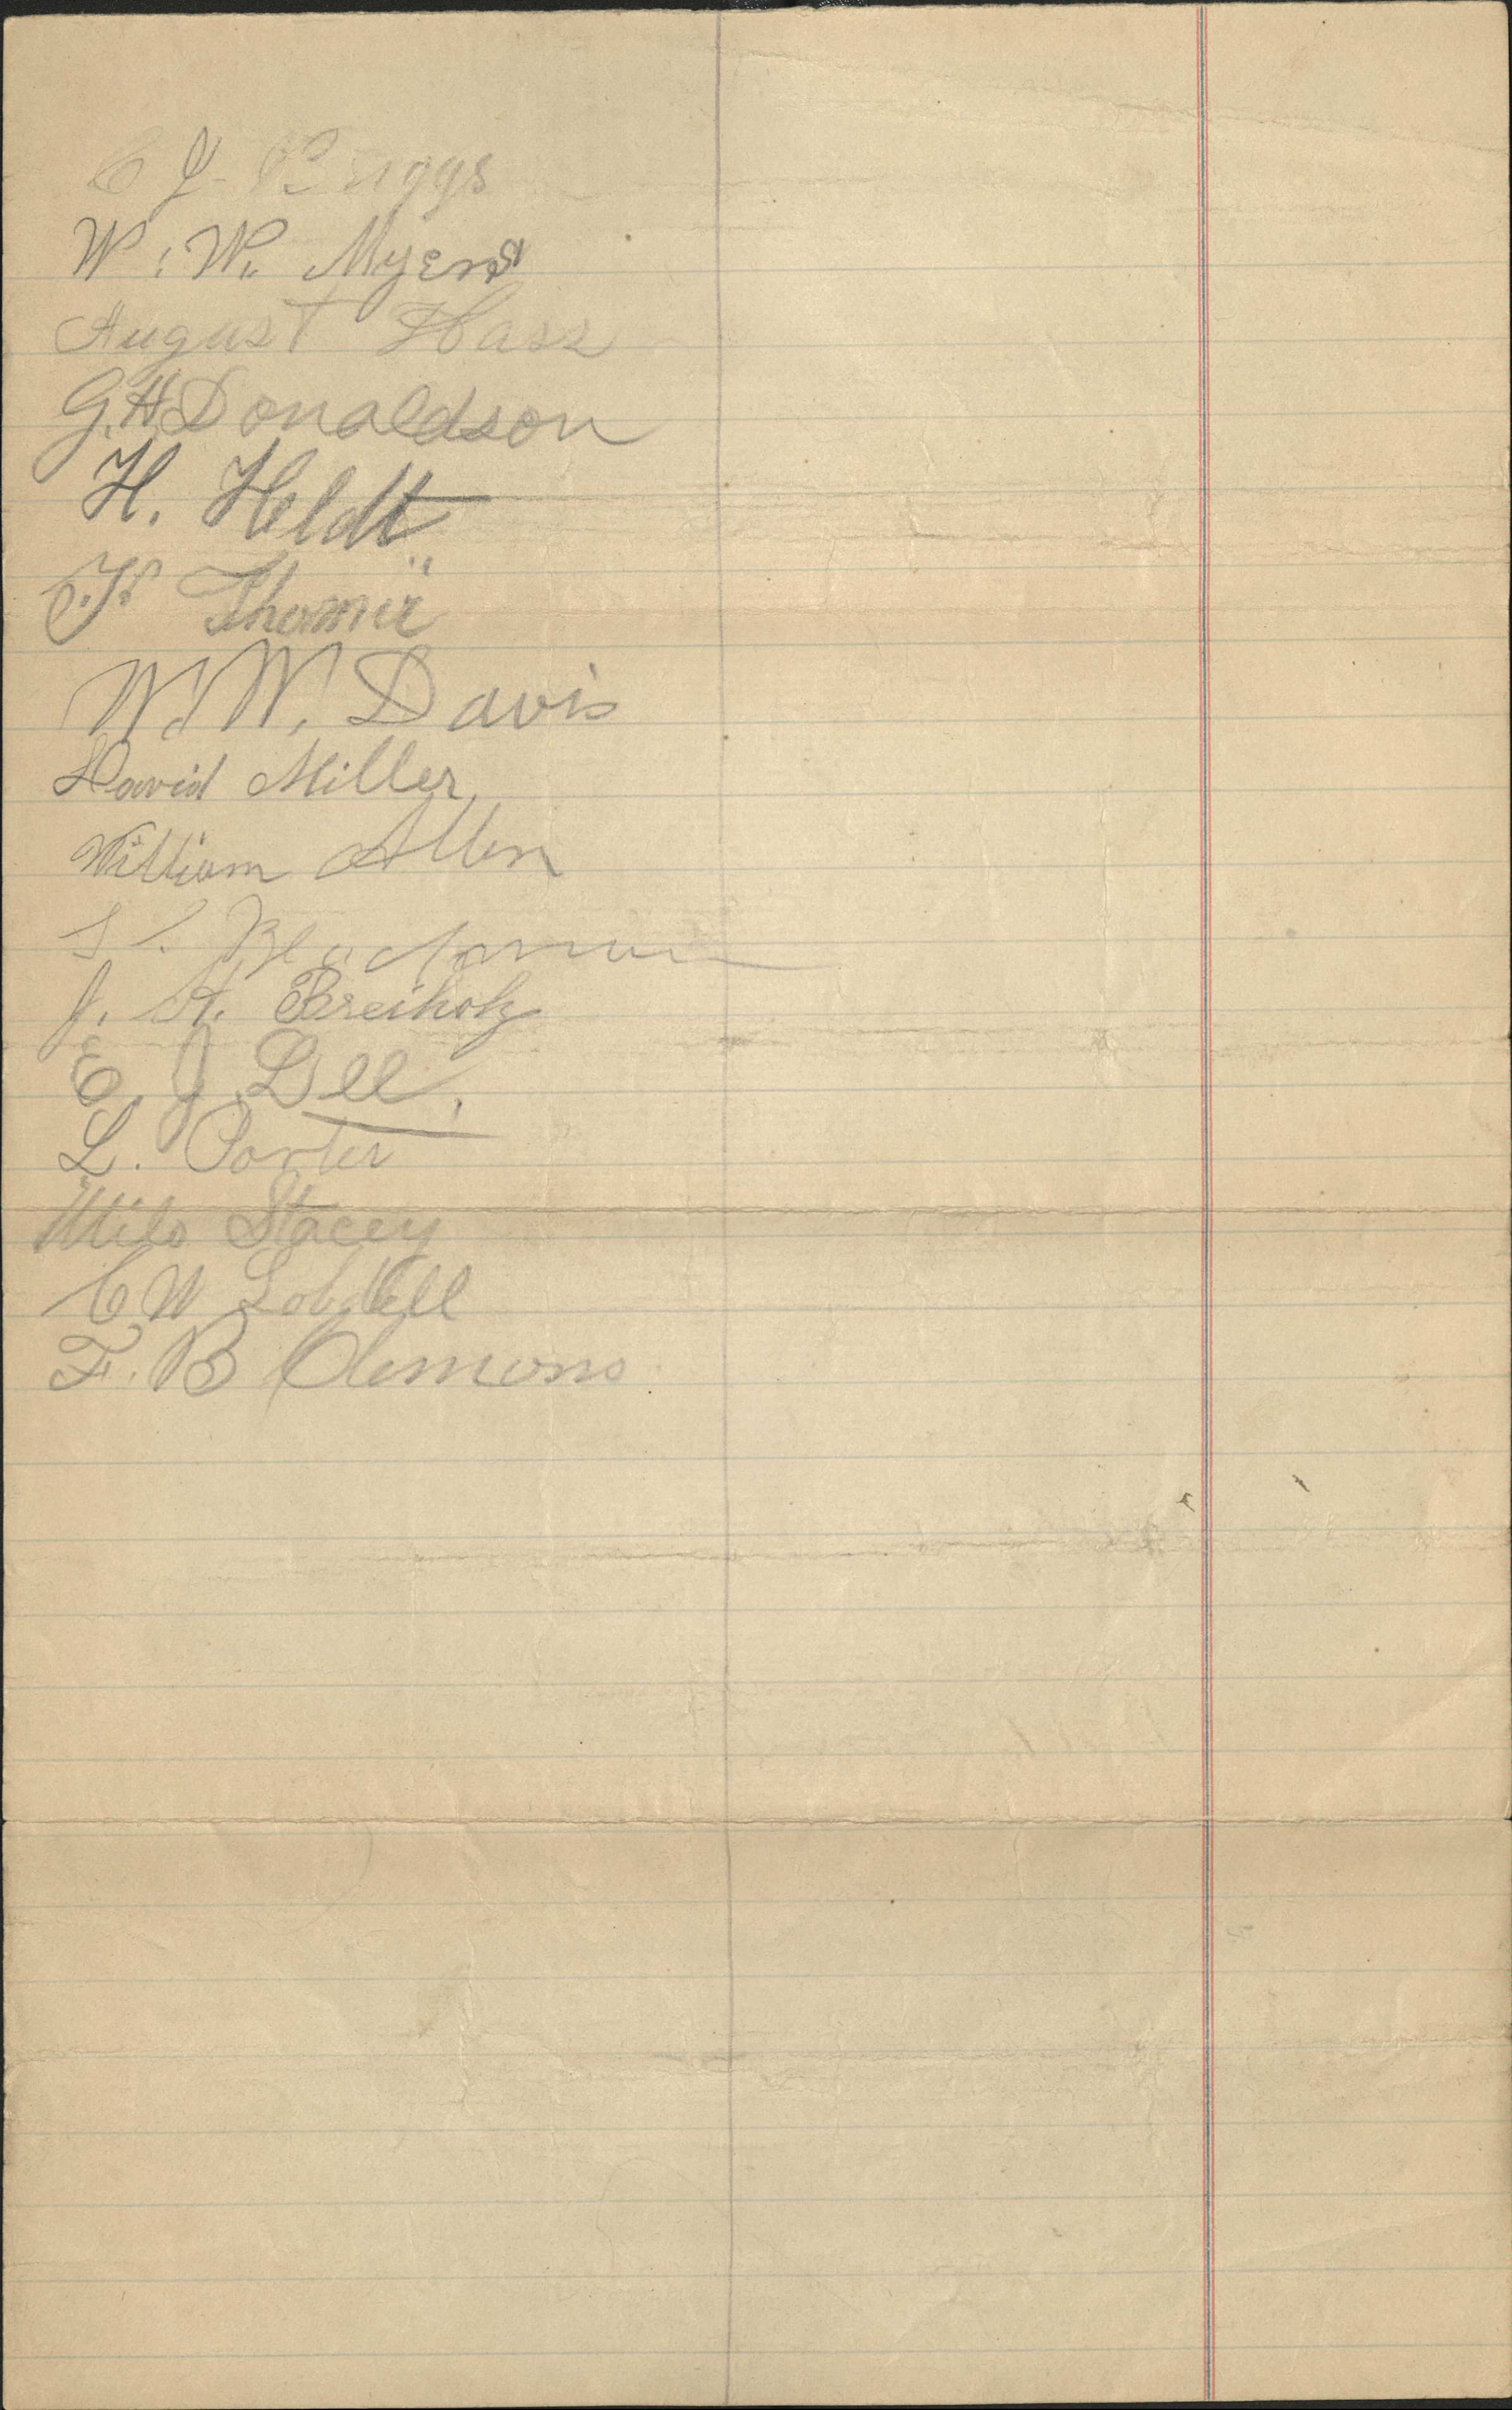 C J. Briggs
W. W. Myers
August Hass
G. H Donaldson
H. Heldt
W. W. Davis
David Miller
William Allen
J. A. Breiholz
E. J. Dee.
L. Porter
Milo Stacey
C W Lobdell
F. B Clemons